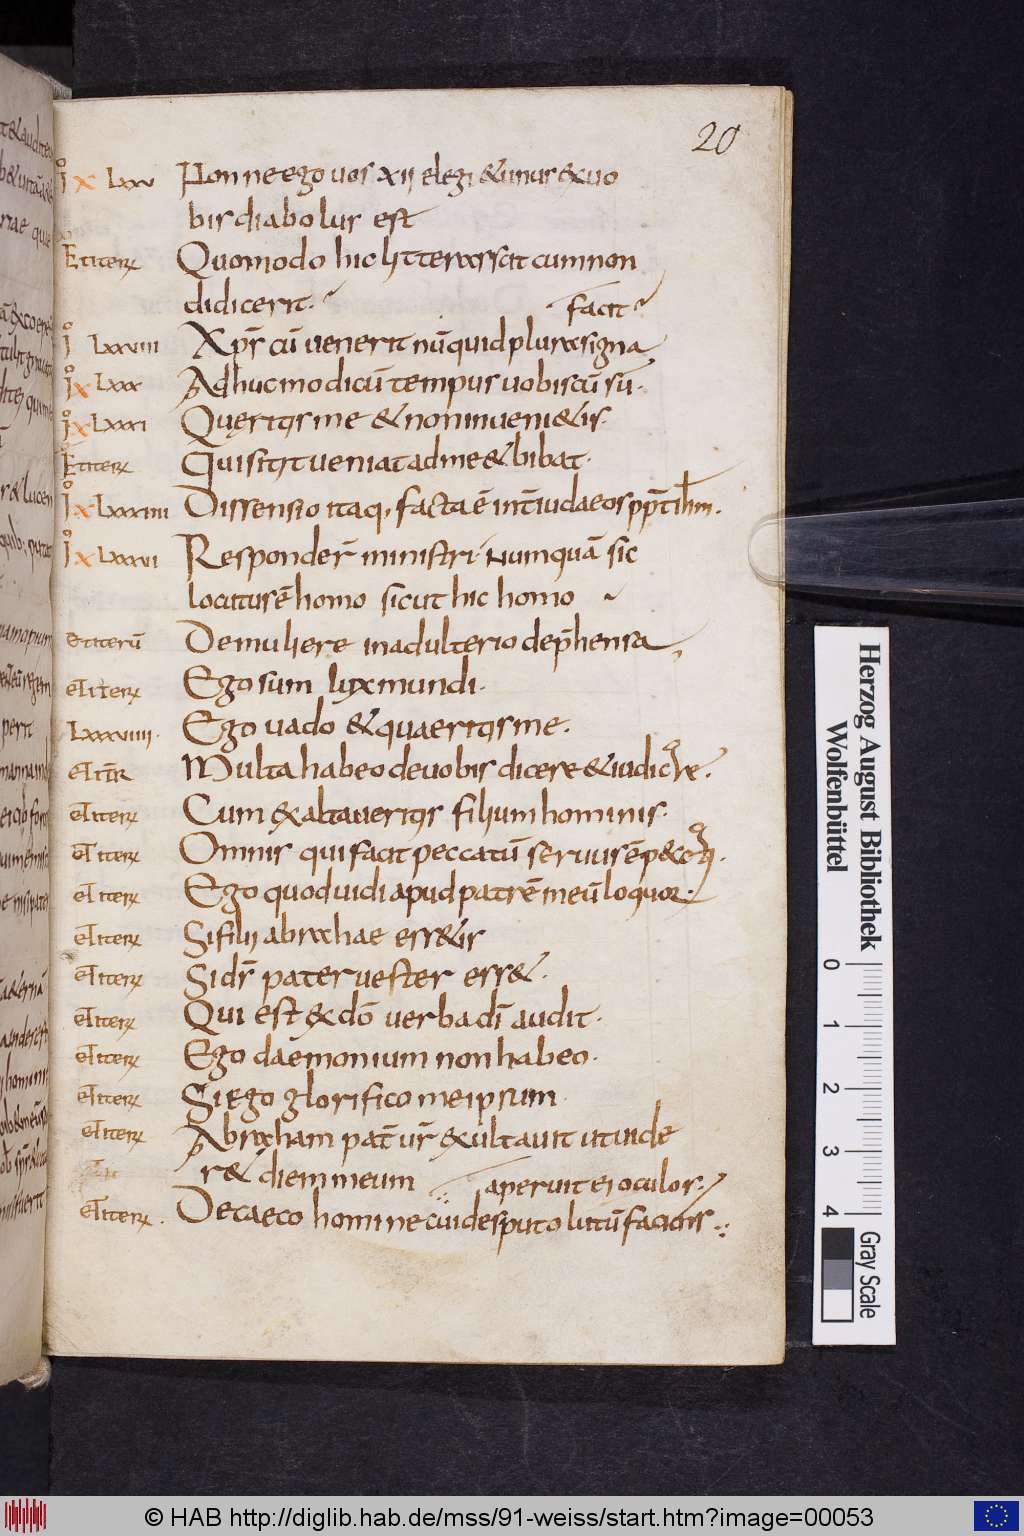 20
Io x Lxxv Nonne ego uos xıj elegi & unus ex uo
bis diabolus est
Et iterꝝ Quomodo hic litteras scit cum non
didicerit. facit
Io Lxxviiii Xp̄s cū uenerit nūquid plura signa
Io x Lxxx Adhuc modicū tempus uobiscū sū.
Io x Lxxxi Queritis me & non inueni&is.
Et iterꝝ Qui sitit ueniat ad me & bibat.
Io x Lxxxiiii Dissensio itaq; facta ē int̄ iudaeos pp̄t ih̄m.
Io x Lxxxvi Responder̄ ministri. Numquā sic
locutus ē homo sicut hic homo
et iterū De muliere in adulterio dep̄hensa
et iterꝝ Ego sum lux mundi.
Lxxxviiii. Ego uado & quaeritis me.
et it̄R Multa habeo de uobis dicere & iudicare.
et iterꝝ Cum exaltaueritis filium hominis.
et iterꝝ Omnis qui facit peccatū seruus ē pecca
et iterꝝ Ego quod uidi apud patrē meū loquor.
et iterꝝ Si filij abrahae ess&is
et iterꝝ Si d̄s pater uester ess&.
et iterꝝ Qui est ex dō uerba dī audit.
et iterꝝ Ego daemonium non habeo.
et iterꝝ Si ego glorifico me ipsum
et iterꝝ Abraham pat̄ ur̄ exultauit ut uide
r& diem meum aperuit ei oculos
et iterꝝ. De caeco homine cui de sputo lutū faciens
Herzog August Bibliothek
Wolfenbüttel
0 1 2 3 4
Gray Scale
© HAB http://diglib.hab.de/mss/91-weiss/start.htm?image=00053